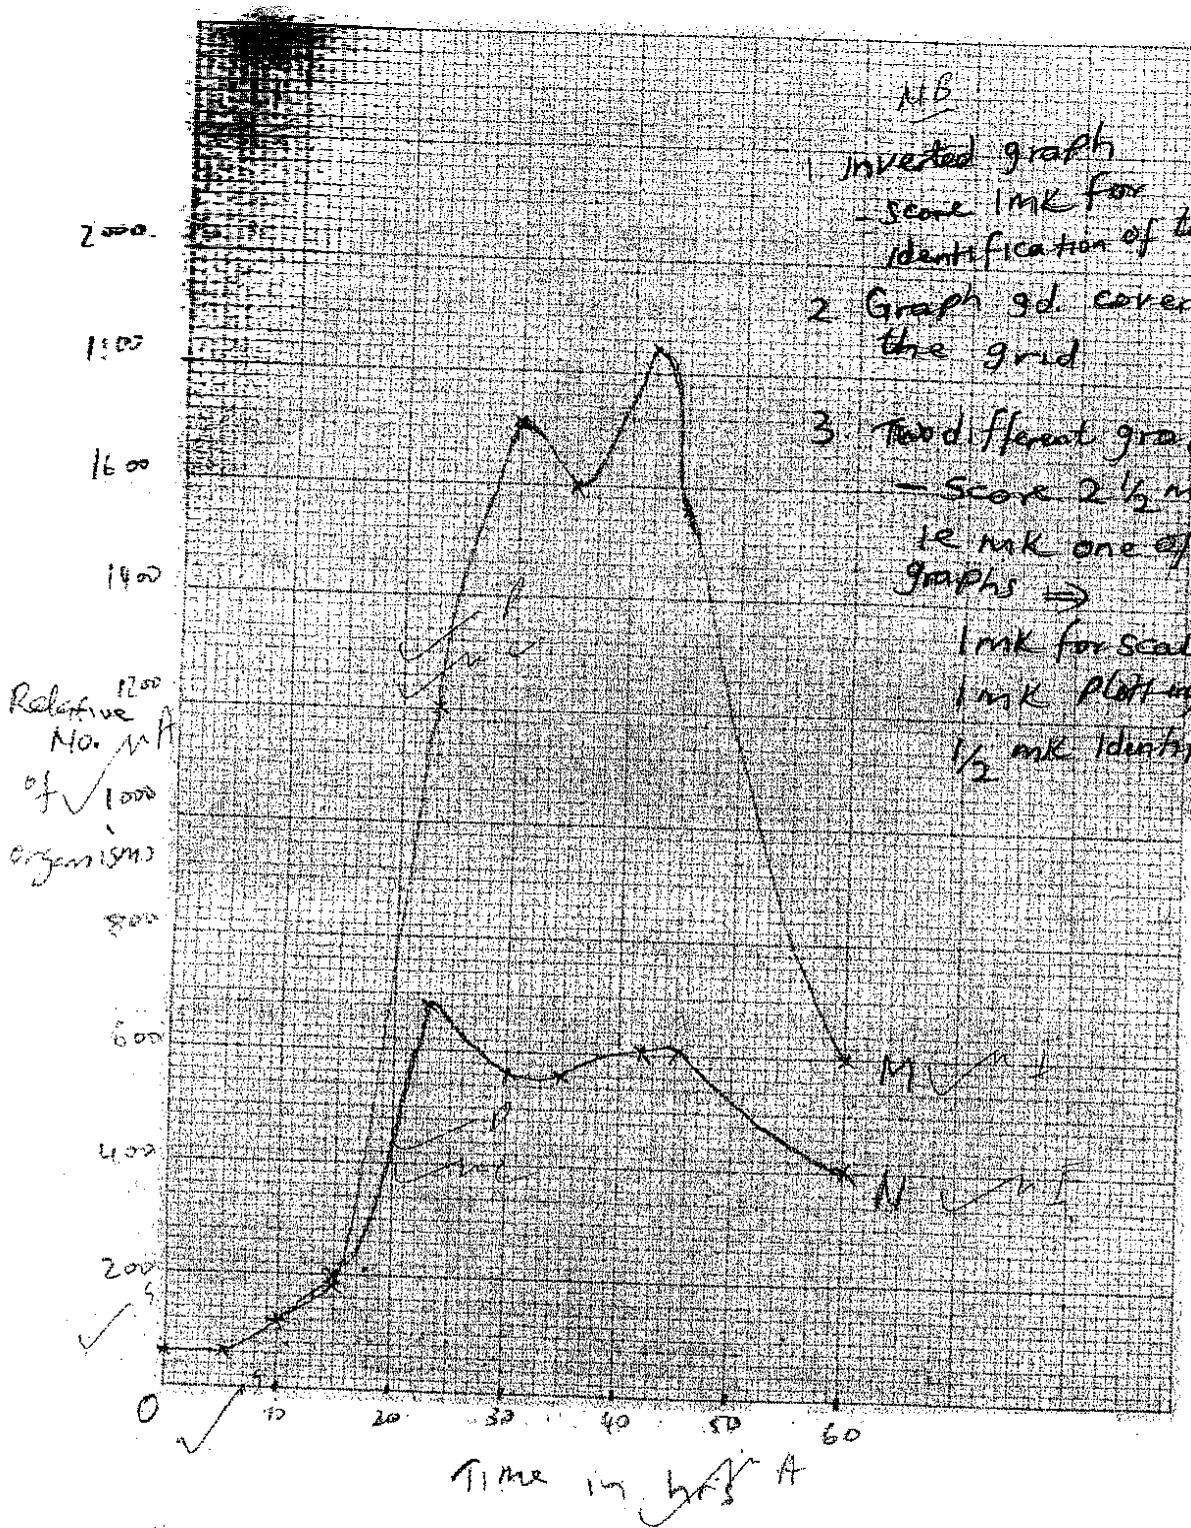 NB
1 Inverted graph
- Score 1mk for
identification of
2 Graph gd.
the grid
3. Two different
- Score 2 1/2
ie mk one of
graphs ⇒
1mk for
1mk
1/2 mk
2000
1800
1600
1400
1200
1000
800
600
400
200
Relative
No.
of
organisms
A
M
N
0
10
20
30
40
50
60
Time in hrs A